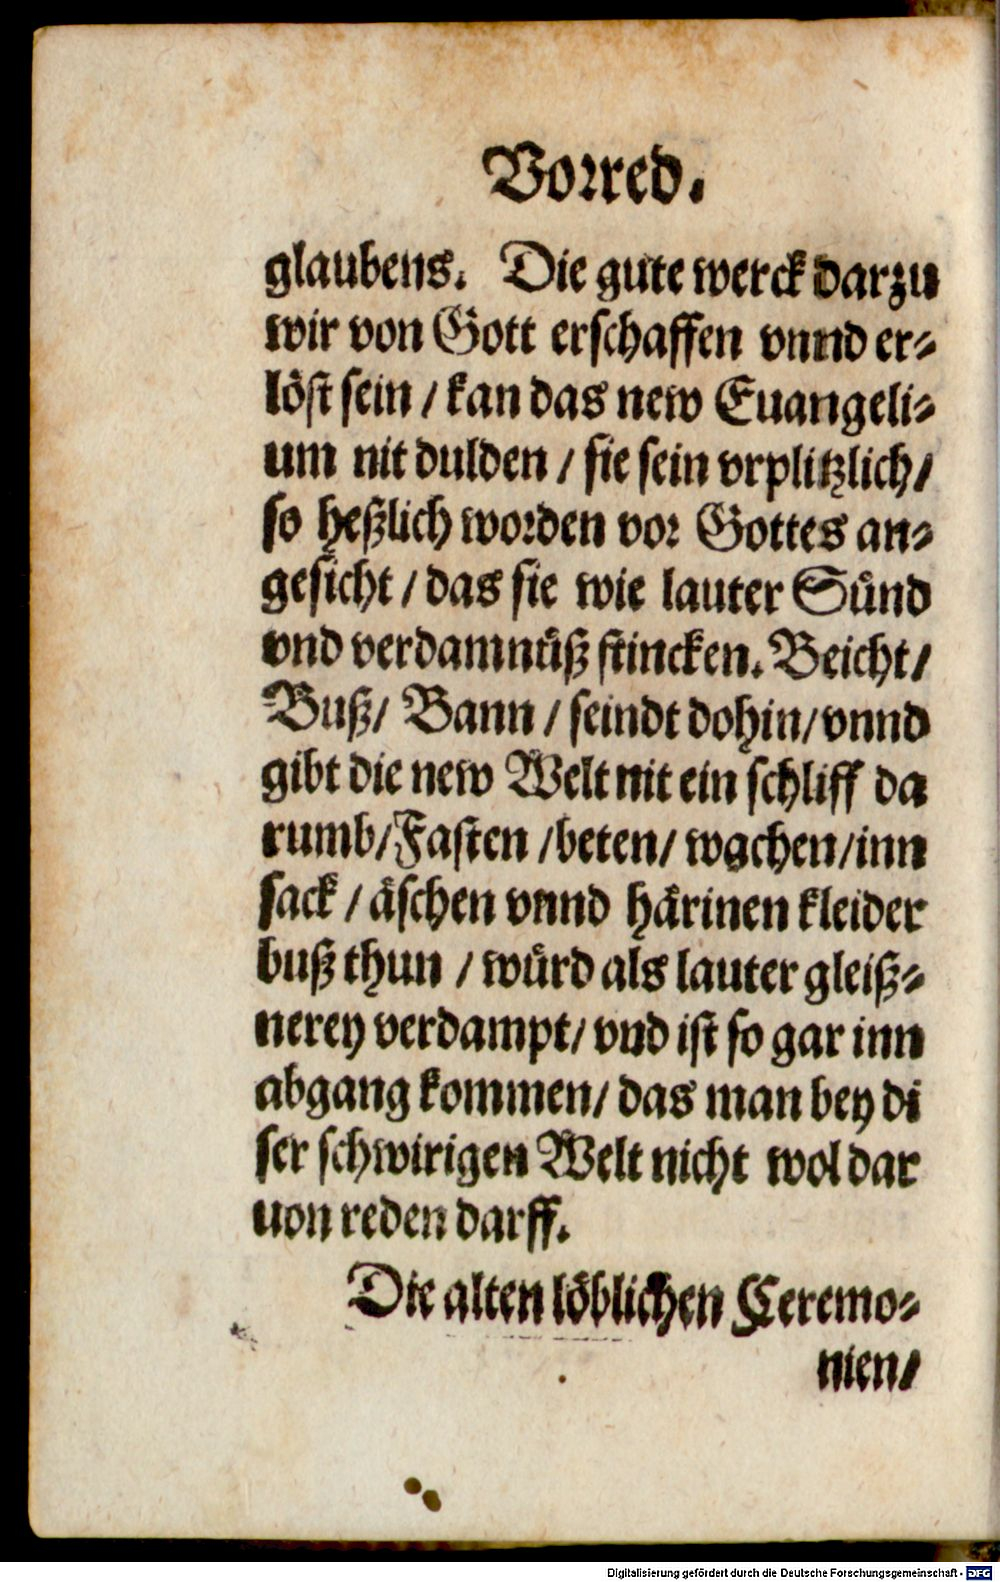 Vorred.
glaubens. Die gute werck darzu
wir von Gott erschaffen vnnd er-
löst sein / kan das new Euangeli-
um nit dulden / sie sein vrplitzlich/
so heßlich worden vor Gottes an-
gesicht / das sie wie lauter Sünd
vnd verdamnüß stincken. Beicht/
Buß/ Bann / seindt dohin/ vnnd
gibt die new Welt nit ein schliff da
rumb/Fasten /beten/ wachen/inn
sack / äschen vnnd härinen kleider
buß thun / würd als lauter gleiß-
nerey verdampt/ vnd ist so gar inn
abgang kommen/ das man bey di
ser schwirigen Welt nicht wol dar
uon reden darff.
Die alten löblichen Ceremo-
nien/
Digitalisierung gefördert durch die Deutsche Forschungsgemeinschaft - DFG